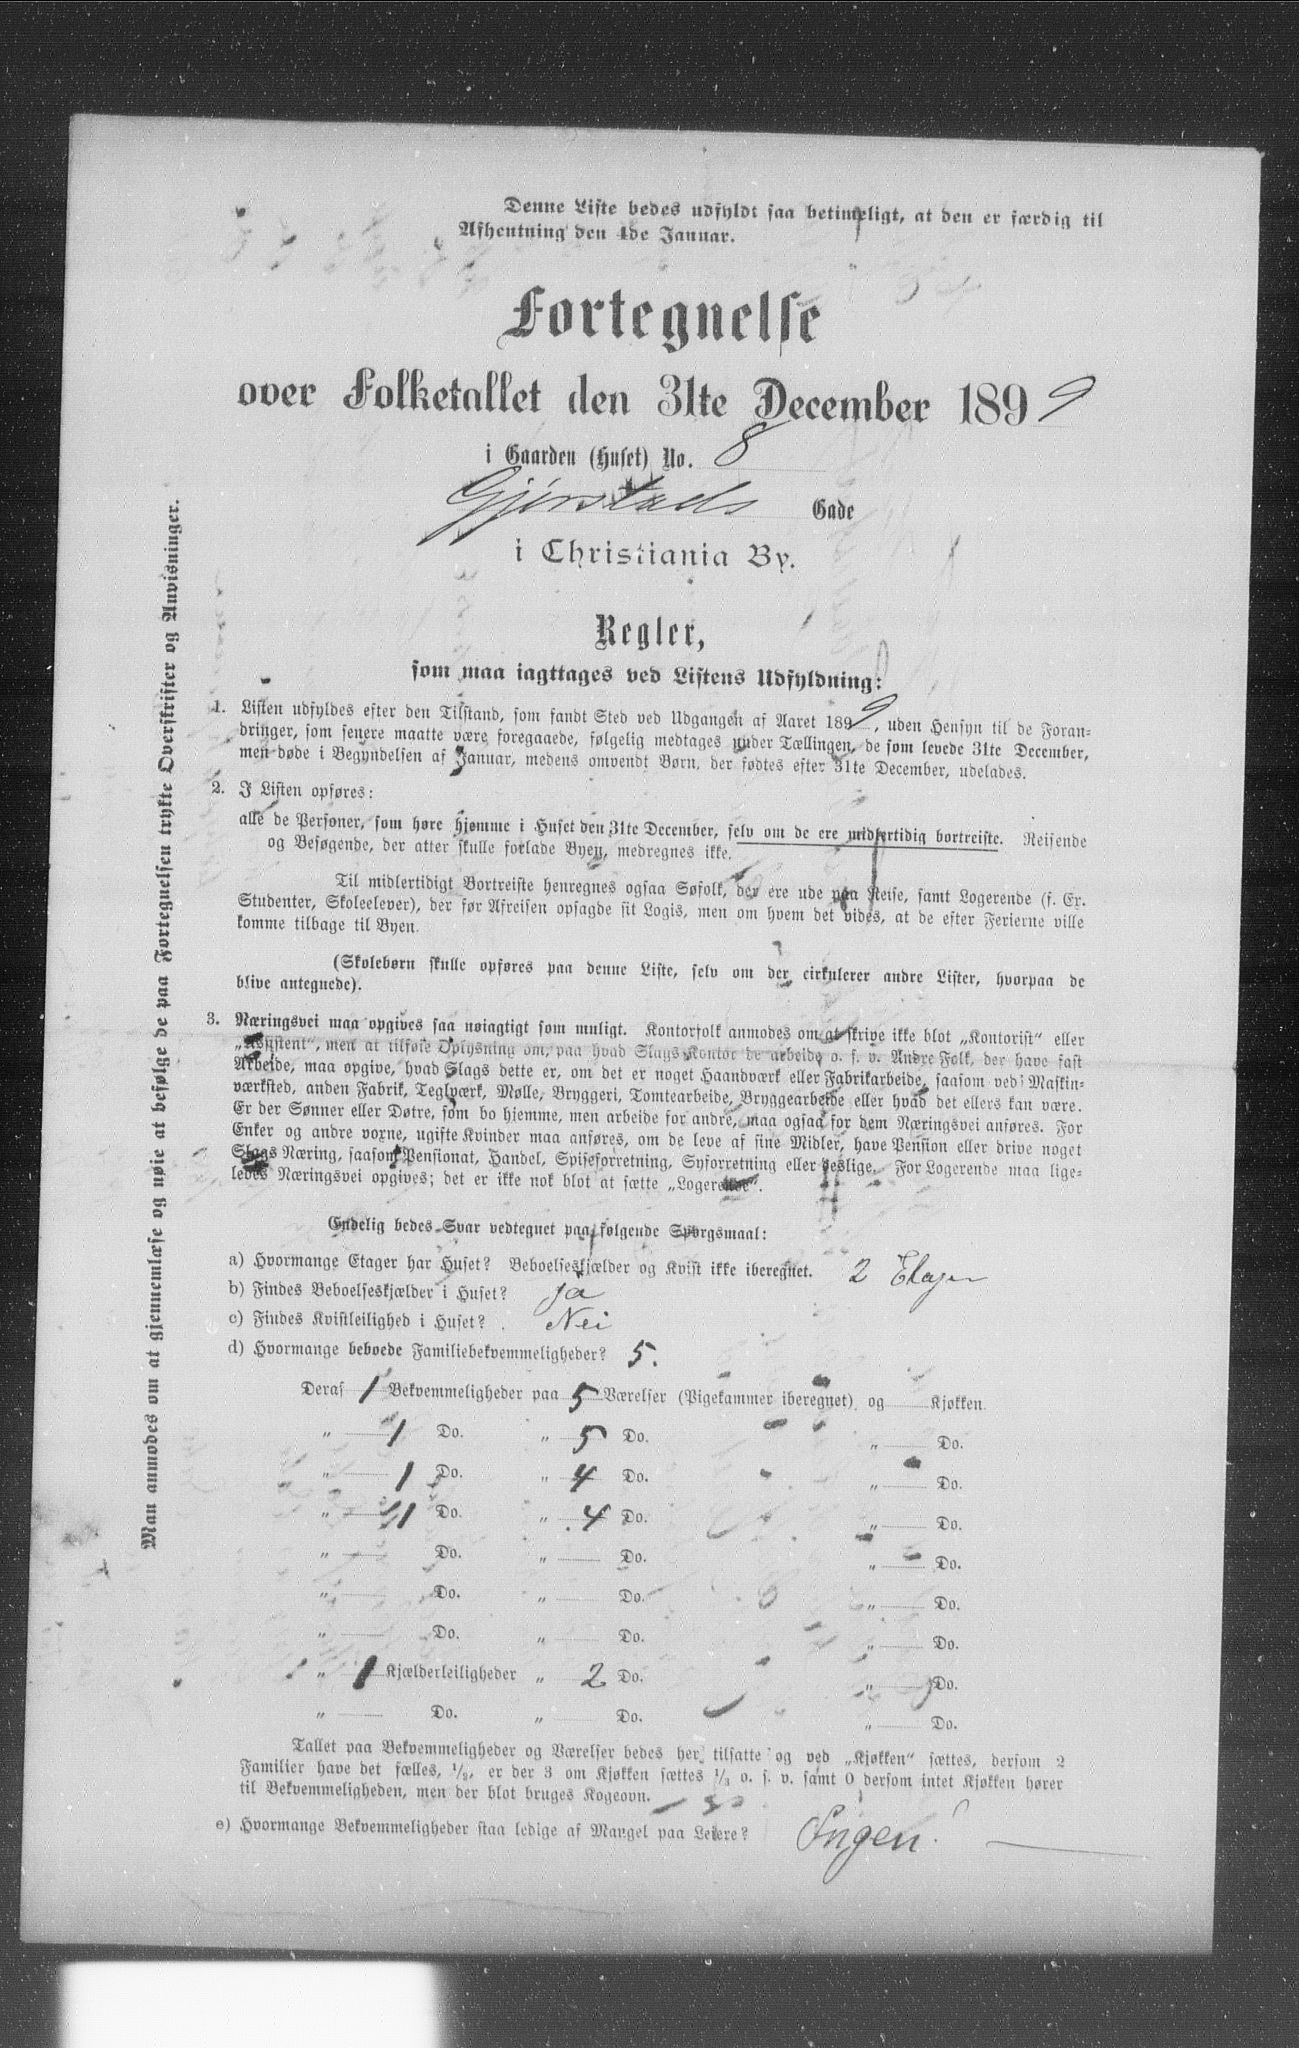 Denne Liste bedes udfyldt saa betimeligt, at den er færdig til
Afhentning den 4de Januar.
Fortegnelse
over Folketallet den 31te December 1899
i Gaarden (Huset) No. 8
Gjørstads Gade
i Christiania By.
Regler,
som maa iagttages ved Listens Udfyldning:
1. Listen udfyldes efter den Tilstand, som fandt Sted ved Udgangen af Aaret 1899, uden Hensyn til de Foran-
dringer, som senere maatte være foregaaede, følgelig medtages under Tællingen, de som levede 31te December,
men døde i Begyndelsen af Januar, medens omvendt Børn, der fødtes efter 31te December, udelades.
2. I Listen opføres:
alle de Personer, som høre hjemme i Huset den 31te December, selv om de ere midlertidig bortreiste. Reisende
og Besøgende, der atter skulle forlade Byen, medregnes ikke.
Til midlertidigt Bortreiste henregnes ogsaa Søfolk, der ere ude paa Reise, samt Logerende (f. Ex.
Studenter, Skoleelever), der før Afreisen opsagde sit Logis, men om hvem det vides, at de efter Ferierne ville
komme tilbage til Byen.
(Skolebørn skulle opføres paa denne Liste, selv om der cirkulerer andre Lister, hvorpaa de
blive antegnede).
3. Næringsvei maa opgives saa nøiagtigt som muligt. Kontorfolk anmodes om at skrive ikke blot „Kontorist“ eller
„Assistent“, men at tilføie Oplysning om, paa hvad Slags Kontor de arbeide o. s. v. Andre Folk, der have fast
Arbeide, maa opgive, hvad Slags dette er, om det er noget Haandværk eller Fabrikarbeide, saasom ved Maskin-
værksted, anden Fabrik, Teglværk, Mølle, Bryggeri, Tomtearbeide, Bryggearbeide eller hvad det ellers kan være.
Er der Sønner eller Døtre, som bo hjemme, men arbeide for andre, maa ogsaa for dem Næringsvei anføres. For
Enker og andre voxne, ugifte Kvinder maa anføres, om de leve af sine Midler, have Pension eller drive noget
Slags Næring, saasom Pensionat, Handel, Spiseforretning, Syforretning eller deslige. For Logerende maa lige-
ledes Næringsvei opgives; det er ikke nok blot at sætte „Logerende“.
Endelig bedes Svar vedtegnet paa følgende Spørgsmaal:
a) Hvormange Etager har Huset? Beboelseskjælder og Kvist ikke iberegnet. 2 Etager
b) Findes Beboelseskjælder i Huset? Ja
c) Findes Kvistleilighed i Huset? Nei
d) Hvormange beboede Familiebekvemmeligheder? 5.
Deraf 1 Bekvemmeligheder paa 5 Værelser (Pigekammer iberegnet) og Kjøkken.
„ 1 Do. „ 5 Do. „ Do.
„ 1 Do. „ 4 Do. „ Do.
„ 1 Do. „ 4 Do. „ Do.
„ Do. „ Do. „ Do.
„ Do. „ Do. „ Do.
„ Do. „ Do. „ Do.
„ 1 Kjælderleiligheder „ 2 Do. „ Do.
„ Do. „ Do. „ Do.
Tallet paa Bekvemmeligheder og Værelser bedes her tilsatte og ved „Kjøkken“ sættes, dersom 2
Familier have det fælles, 1/2, er der 3 om Kjøkken sættes 1/3 o. s. v. samt 0 dersom intet Kjøkken hører
til Bekvemmeligheden, men der blot bruges Kogeovn.
e) Hvormange Bekvemmeligheder staa ledige af Mangel paa Leiere? Ingen.
Man anmodes om at gjennemlæse og nøie at befølge de paa Fortegnelsen trykte Overskrifter og Anvisninger.